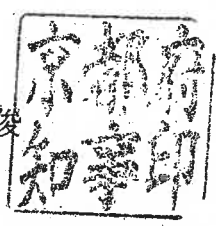 京都府
知事印